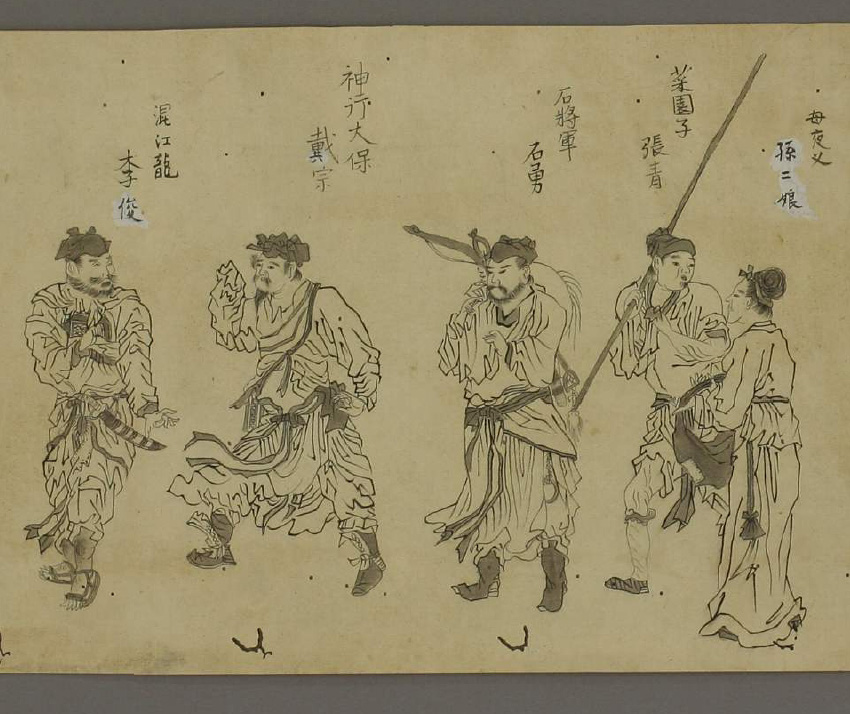 母夜叉
孫二娘
菜園子
張青
石將軍
石勇
神行太保
戴宗
混江龍
李俊